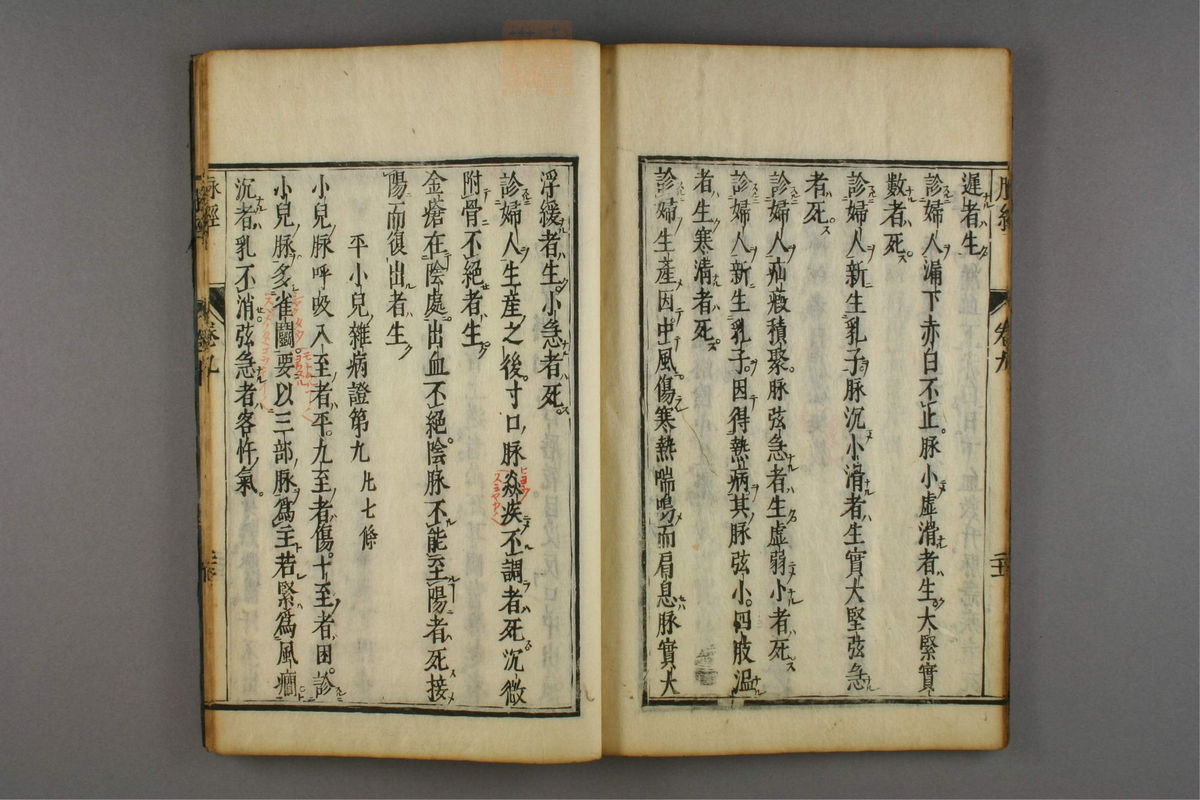 遲者生
診婦人漏下赤白不止。脉小虛滑者生大緊實
數者死。
診婦人新生乳子。脉沉小滑者生實大堅弦急
者死。
診婦人疝瘕積聚。脉弦急者生虛弱小者死
診婦人新生乳子。因得熱病其脉弦小。四肢溫
者生寒清者死。
診婦人生產因中風傷寒熱喘鳴而肩息脉實大
浮緩者生。小急者死。
診婦人生産之後。寸口脉焱疾不調者死沉微
附骨不絕者生。
金瘡在陰處。出血不絕。陰脉不能至陽者死接
陽而復出者生
平小兒雜病證第九
凡七條
小兒脉呼吸八至者平。九至者傷。十至者困。診
小兒脉多雀鬭要以三部脉爲主若緊爲風癇
沉者乳不消弦急者客忤氣。
脉經
卷九